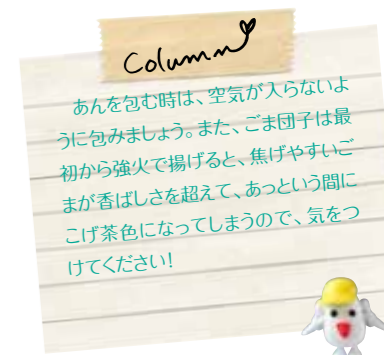 Column
あんを包む時は、空気が入らないよ
うに包みましょう。また、ごま団子は最
初から強火で揚げると、焦げやすいご
まが香ばしさを超えて、あっという間に
こげ茶色になってしまうので、気をつ
けてください！